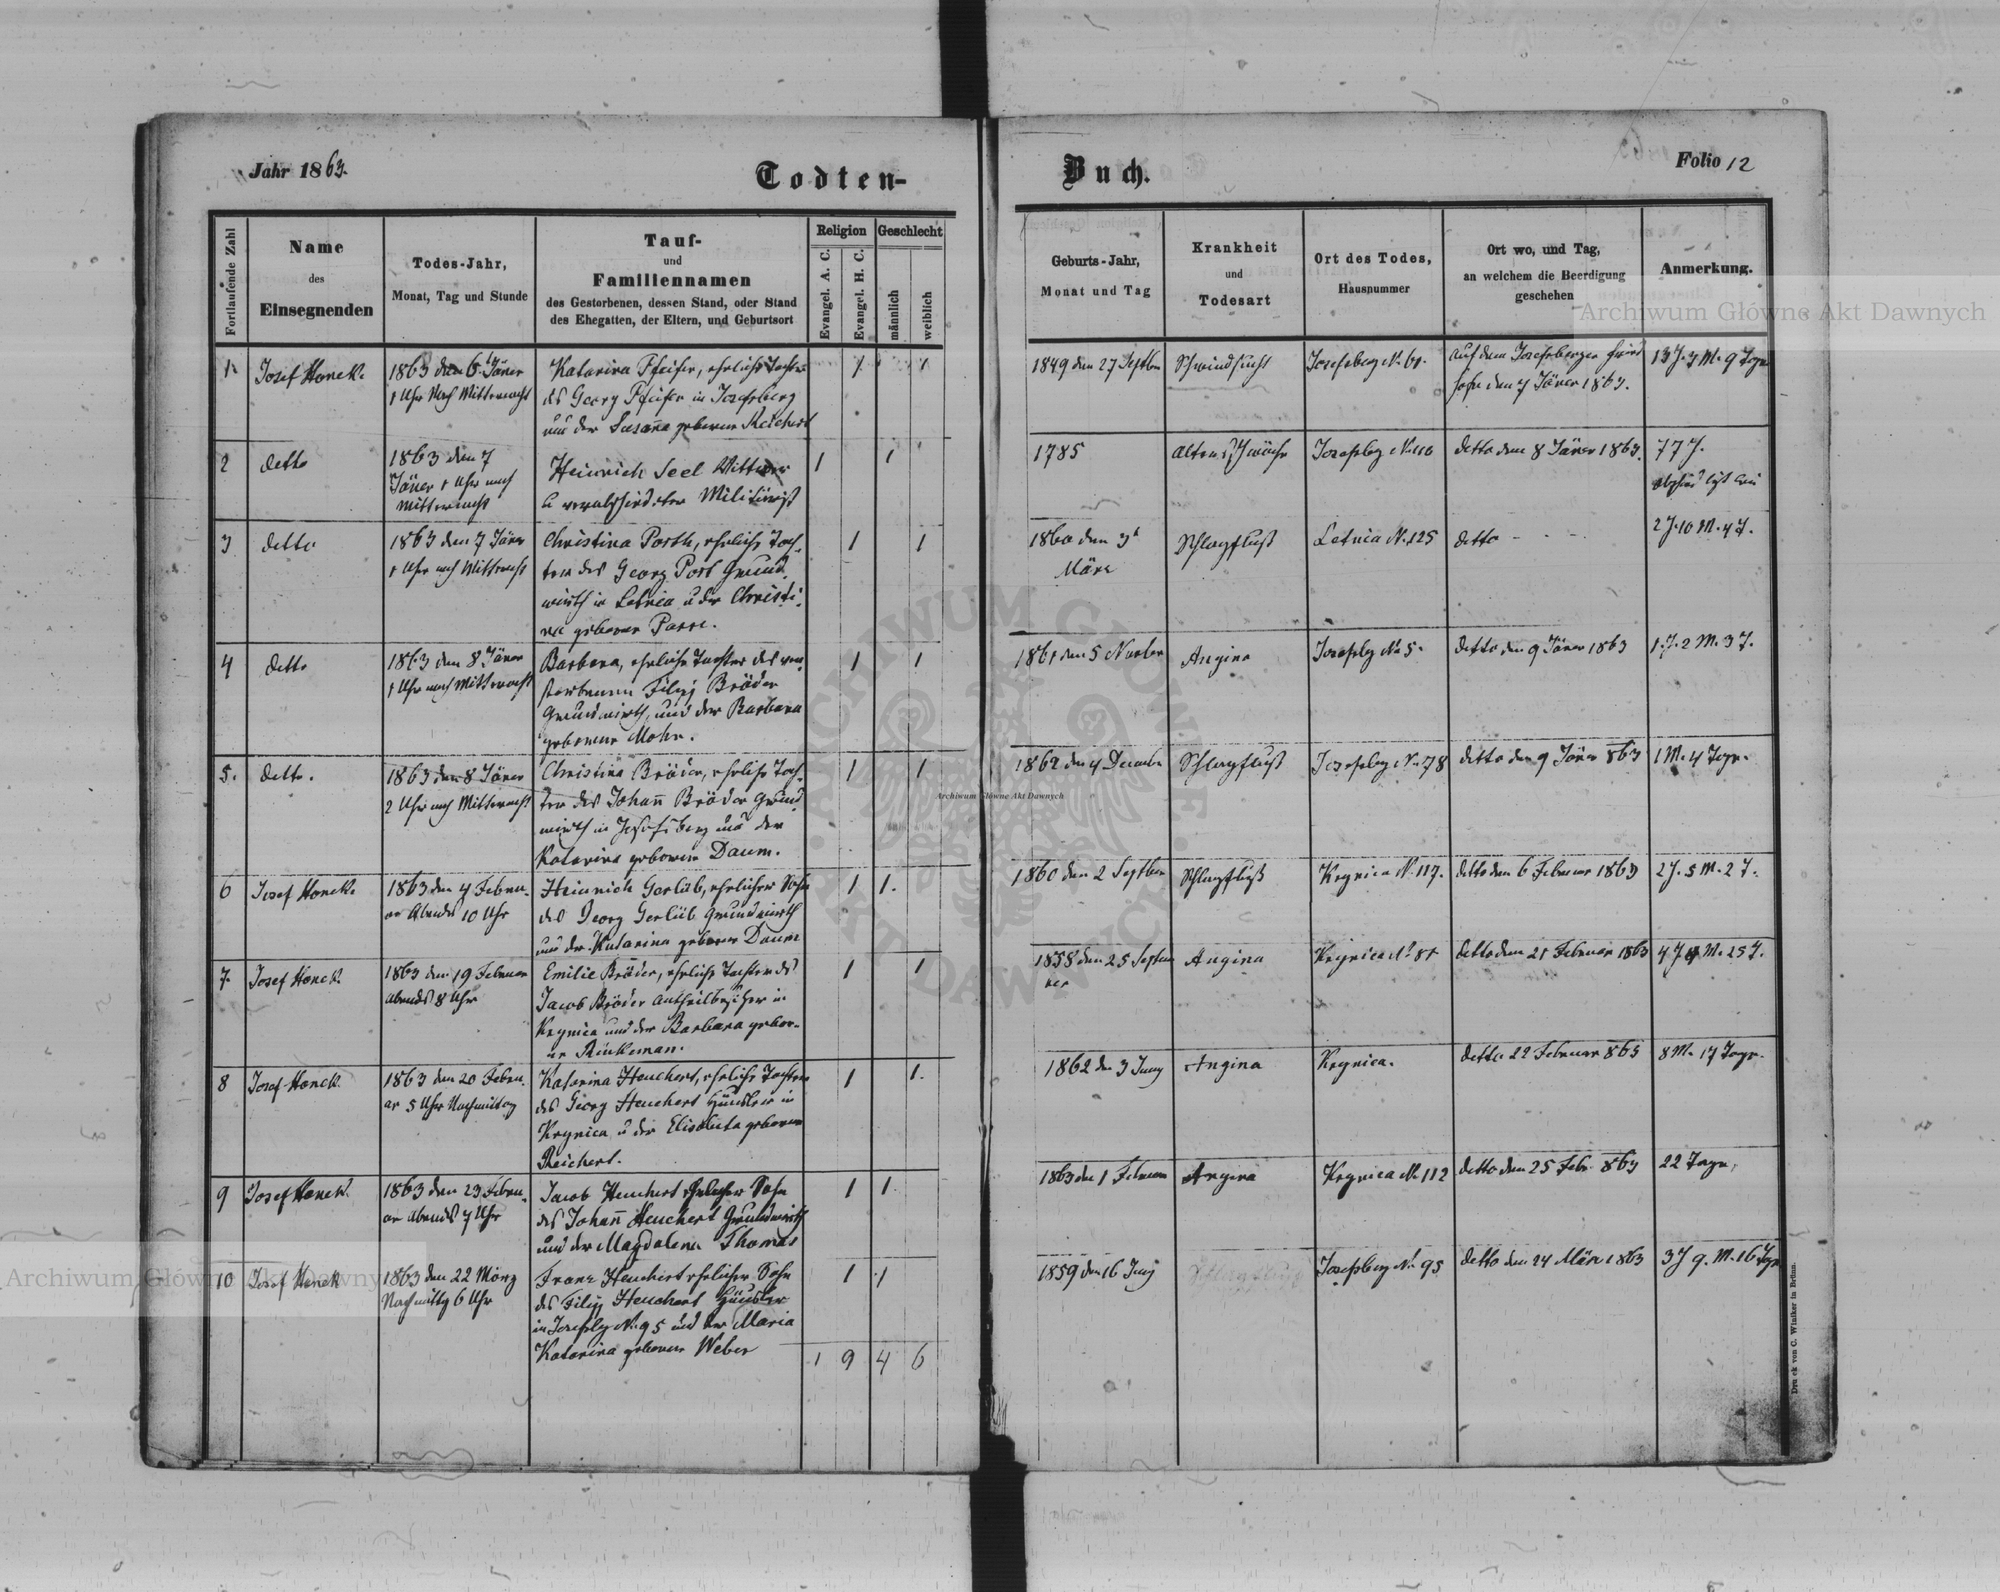 Jahr 1863.
Todten-
Buch.
Folio 12
Fortlaufende Zahl
Name
des
Einsegnenden
Todes-Jahr,
Monat, Tag und Stunde
Tauf-
und
Familiennamen
des Gestorbenen, dessen Stand, oder Stand
des Ehegatten, der Eltern, und Geburtsort
Religion
Evangel. A. C.
Evangel. H. C.
Geschlecht
männlich
weiblich
Geburts-Jahr,
Monat und Tag
Krankheit
und
Todesart
Ort des Todes,
Hausnummer
Ort wo, und Tag,
an welchem die Beerdigung
geschehen
Anmerkung.
1.
Josef Honek.
1863 den 6t Jäner
1 Uhr Nach Mitternacht
Katarina Pfeifer, eheliche Tochter
des Georg Pfeifer in Josefsberg
und der Susana geborene Reichert
1
1
1849 den 27 Septber
Schwindsucht
Josefsberg N. 61.
auf dem Josefsberger Fried
hofe den 7 Jäner 1863.
13 J. 3 M. 9 Tage
2
detto
1863 den 7
Jäner 1 Uhr nach
Mitternacht
Heinrich Seel Wittwer
u verabschiedeter Militärist
1
1
1785
Altersschwäche
Josefsbg N. 110
detto den 8 Jäner 1863.
77 J.
3
detto
1863 den 7 Jäner
1 Uhr nach Mitternacht
Christina Porth, eheliche Toch-
ter des Georg Port Grund
wirth in Letnia u der Christi-
na geborene Parr.
1
1
1860 den 3t
März
Schlagfluß
Letnia N. 125
detto - - -
2 J. 10 M. 4 T.
4
detto
1863 den 8 Jäner
1 Uhr nach Mitternacht
Barbara, eheliche Tochter des ver-
storbenen Filipp Bröder
Grundwirth, und der Barbara
geborene Mohr.
1
1
1861 den 5 Novber
Angina
Josefsbg N. 5.
detto den 9 Jäner 1863
1. J. 2 M. 3 T.
5.
detto.
1863 den 8 Jäner
2 Uhr nach Mitternacht
Christina Bröder, eheliche Toch-
ter des Johann Bröder Grund
wirth in Josefsberg und der
Katarina geborene Daum.
1
1
1862 den 4 Decembr
Schlagfluß
Josefsbg N. 78
detto den 9 Jäner 863
1 M. 4 Tage.
6
Josef Honek.
1863 den 4 Febru-
ar Abends 10 Uhr
Heinrich Gerlüb, ehelicher Sohn
des Georg Gerlüb Grundwirth
und der Katarina geborene Daum
1
1.
1860 den 2 Septber
Schlagfluß
Krynica N. 117.
detto den 6 Februar 1863
2 J. 5 M. 2 T.
7.
Josef Honek.
1863 den 19 Februar
abends 8 Uhr
Emilie Bröder, eheliche Tochter des
Jacob Bröder Antheilbesitzer in
Krynica und der Barbara gebor-
ne Rinkeman.
1
1
1858 den 25 Septem
ber
Angina
Krynica N. 81
detto den 21 Februar 1863
4 J. 4 M. 25 T.
8
Josef Honek.
1863 den 20 Febru-
ar 5 Uhr Nachmittag
Katarina Heuchert, eheliche Tochter
des Georg Heuchert Häusler in
Krynica u der Elisabeta geborene
Reichert.
1
1.
1862 den 3 Juny
Angina
Krynica.
detto 22 Februar 863
8 M. 17 Tage.
9
Josef Honek.
1863 den 23 Febru-
ar abends 7 Uhr
Jacob Heuchert ehelicher Sohn
des Johann Heuchert Grundwirth
und der Magdalena Thomas
1
1.
1863 den 1 Februar
Angina
Krynica N. 112
detto den 25 Febr. 863
22 Tage,
10
Josef Honek
1863 den 22 März
Nachmittg 6 Uhr
Franz Heuchert ehelicher Sohn
des Filipp Heuchert Häusler
in Josefsbg N. 95 und der Maria
Katarina geborene Weber
1
1
1859 den 16 Juny
Josefsberg N. 95
detto den 24 März 1863
3 J 9. M. 16 Tge
1 9 4 6
Druck von C. Winiker in Brünn.
Archiwum Główne Akt Dawnych
Archiwum Główne Akt Dawnych
Archiwum Główne Akt Dawnych
ARCHIWUM GŁÓWNE
AKT DAWNYCH